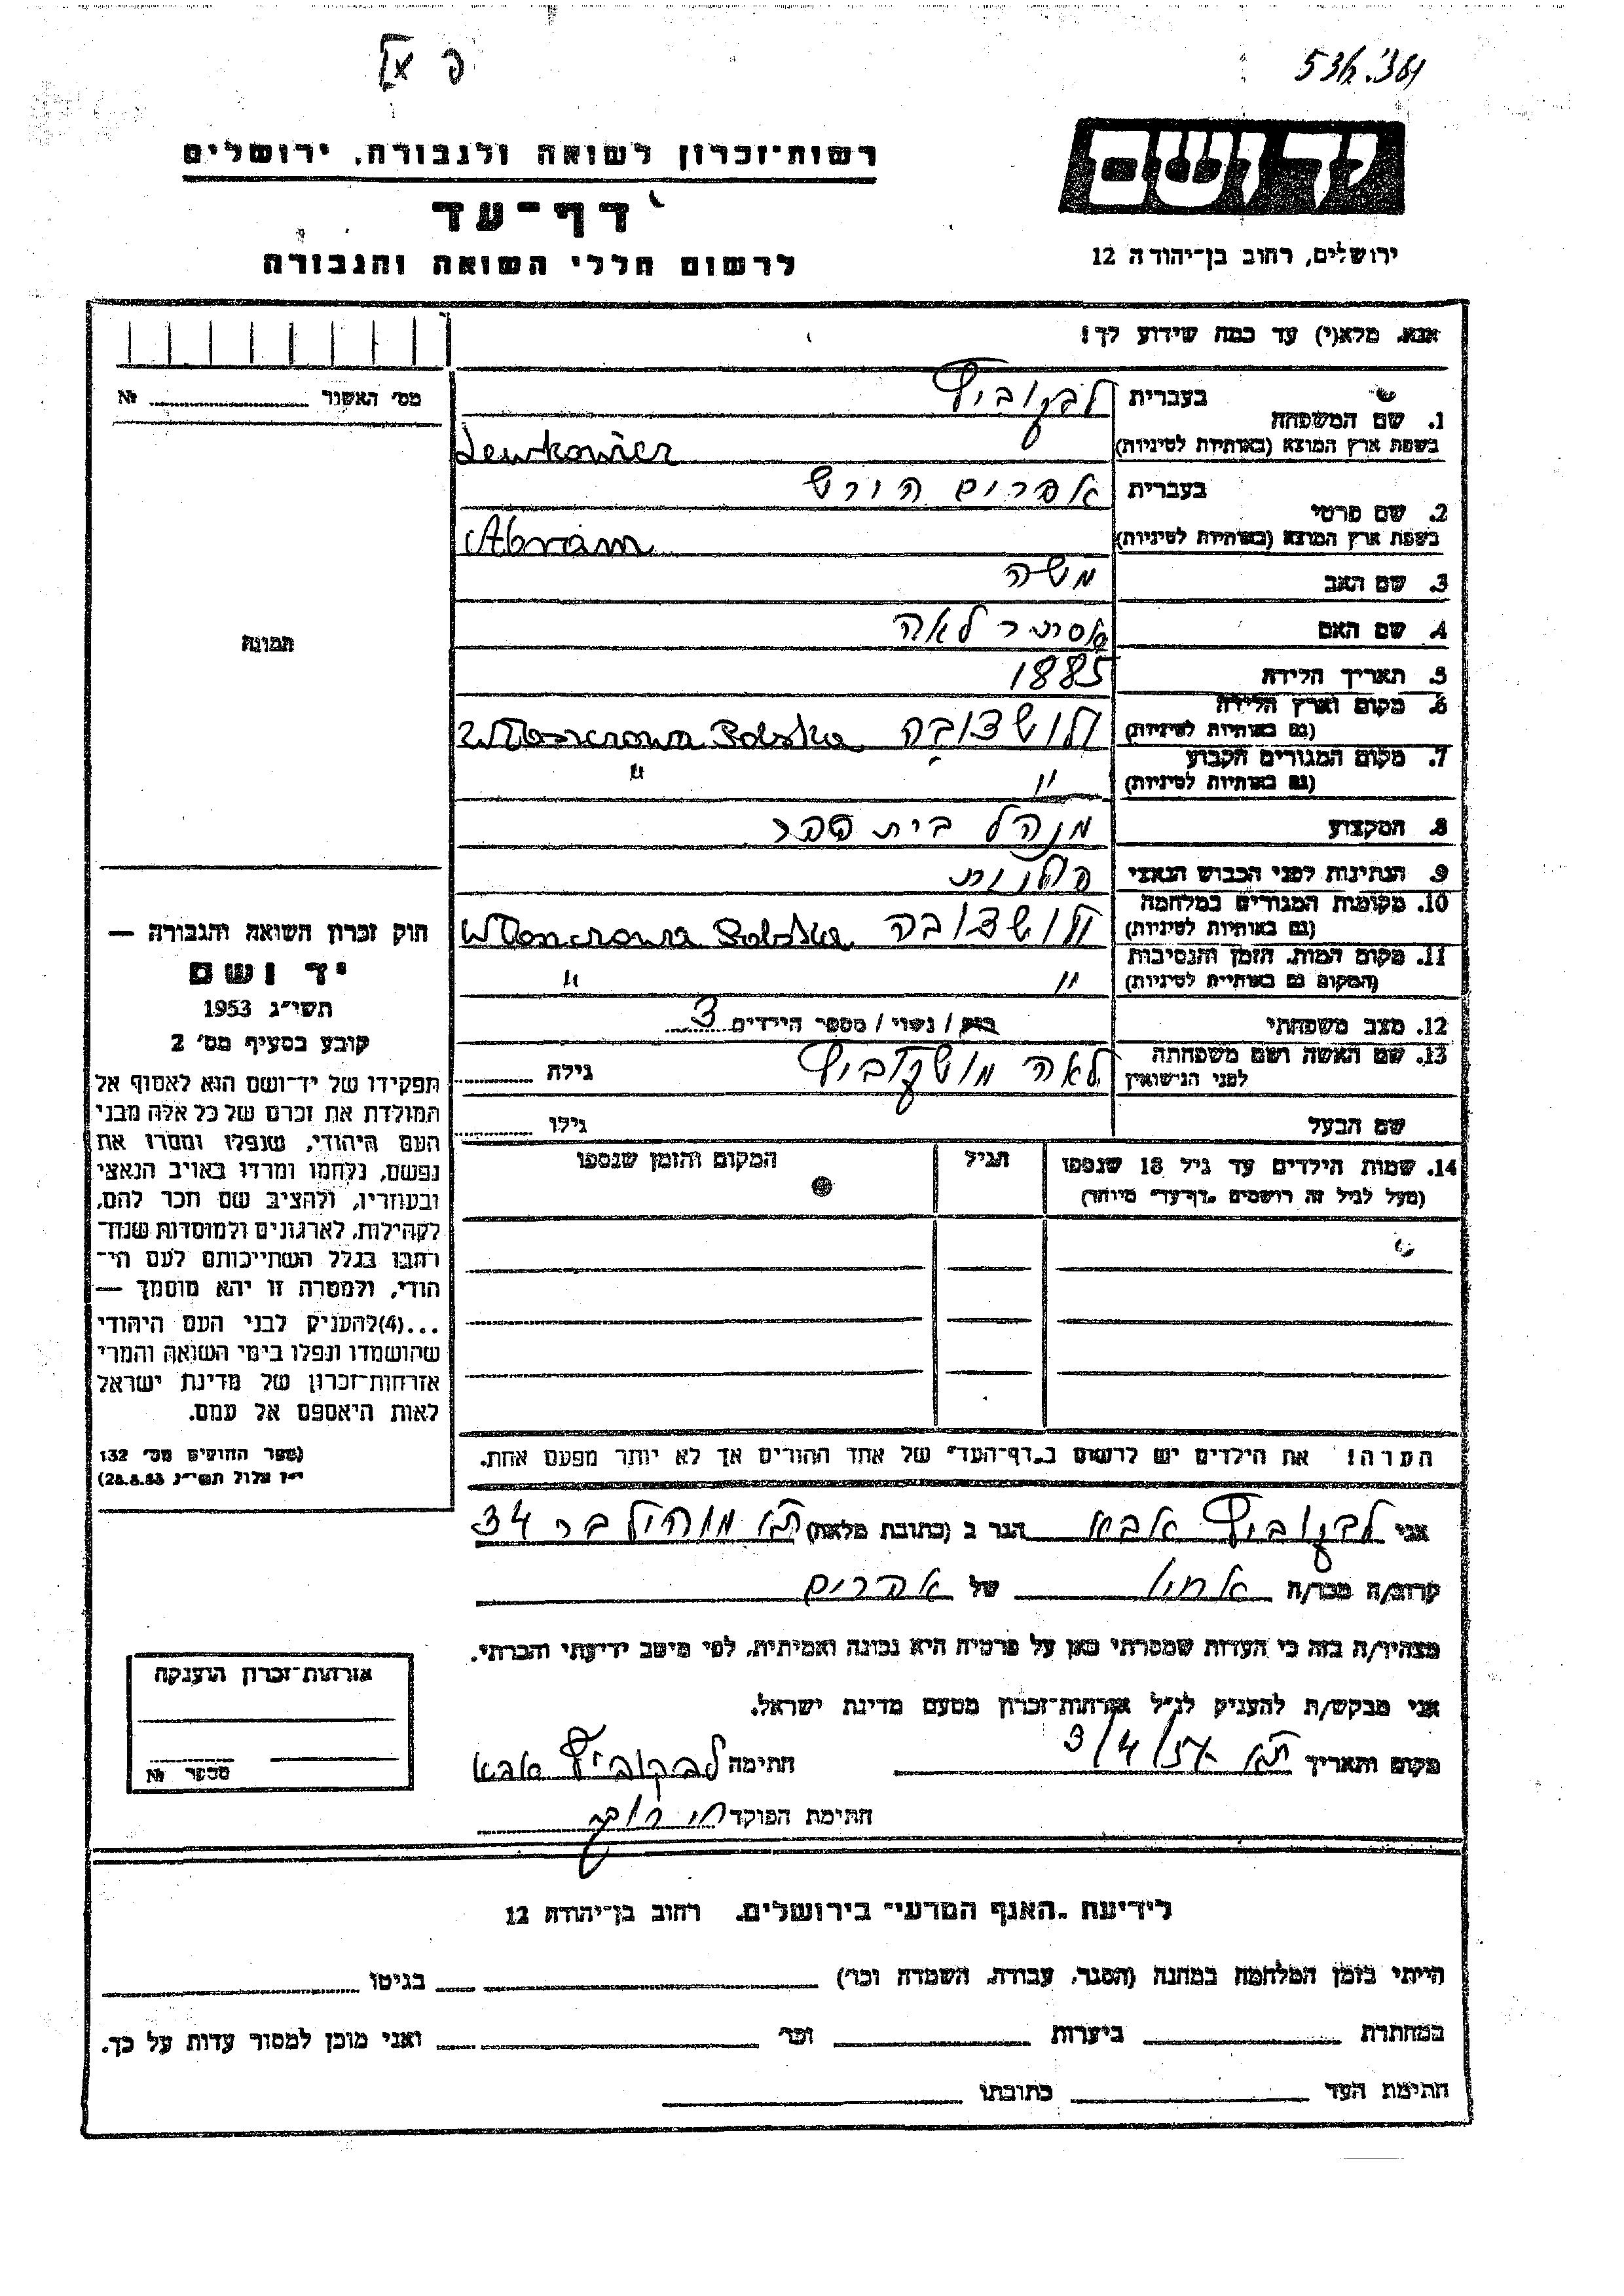 רשות־זכרון לשואה ולגבורה, ירושלים
דף־עד
לרשום חללי השואה והגבורה
יד ושם
ירושלים, רחוב בן־יהודה 12
אנא, מלא(י) עד כמה שידוע לך!
מס׳ האשור № 
1. שם המשפחה בעברית לבקוביץ
בשפת ארץ המוצא (באותיות לטיניות) Lewkowicz
2. שם פרטי בעברית אפרים הירש
בשפת ארץ המוצא (באותיות לטיניות) Abram
3. שם האב משה
4. שם האם אסתר לאה
5. תאריך הלידה 1885
6. מקום וארץ הלידה ולושצובה Wloszczowa Polska
(גם באותיות לטיניות)
7. מקום המגורים הקבוע " "
(גם באותיות לטיניות)
8. המקצוע מנהל בית ספר
9. הנתינות לפני הכבוש הנאצי פולנית
10. מקומות המגורים במלחמה ולושצובה Wloszczowa Polska
(גם באותיות לטיניות)
11. מקום המות, הזמן והנסיבות " "
(המקום גם באותיות לטיניות)
12. מצב משפחתי רווק / נשוי / מספר הילדים 3
13. שם האשה ושם משפחתה לאה מושקוביץ גילה
לפני הנישואין
שם הבעל גילו
14. שמות הילדים עד גיל 18 שנספו הגיל המקום והזמן שנספו
(מעל לגיל זה רושמים "דף־עד" מיוחד)
הערה! את הילדים יש לרשום ב"דף־העד" של אחד ההורים אך לא יותר מפעם אחת.
תמונה
חוק זכרון השואה והגבורה —
יד ושם
תשי״ג 1953
קובע בסעיף מס׳ 2
תפקידו של יד־ושם הוא לאסוף אל
המולדת את זכרם של כל אלה מבני
העם היהודי, שנפלו ומסרו את
נפשם, נלחמו ומרדו באויב הנאצי
ובעוזריו, ולהציב שם וזכר להם,
לקהילות, לארגונים ולמוסדות שנח־
רבו בגלל השתייכותם לעם הי־
הודי, ולמטרה זו יהא מוסמך —
...(4) להעניק לבני העם היהודי
שהושמדו ונפלו בימי השואה והמרי
אזרחות־זכרון של מדינת ישראל
לאות היאספם אל עמם.
(ספר החוקים מס׳ 132
י״ז אלול תשי״ג 28.8.53)
אני לבקוביץ אבא הגר ב (כתובת מלאה) ת"א מוהליבר 34
קרוב/ה מכר/ה אחיו של אפרים
מצהיר/ה בזה כי העדות שמסרתי כאן על פרטיה היא נכונה ואמיתית, לפי מיטב ידיעתי והכרתי.
אני מבקש/ת להעניק לנ״ל אזרחות־זכרון מטעם מדינת ישראל.
מקום ותאריך ת"א 3/4/57 חתימה לבקוביץ אבא
חתימת הפוקד
אזרחות־זכרון הוענקה
מספר №
לידיעת "האגף המדעי" בירושלים, רחוב בן־יהודה 12
הייתי בזמן המלחמה במחנה (הסגר, עבודה, השמדה וכו׳) בגיטו
במחתרת ביערות וכו׳ ואני מוכן למסור עדות על כך.
חתימת העד כתובתו